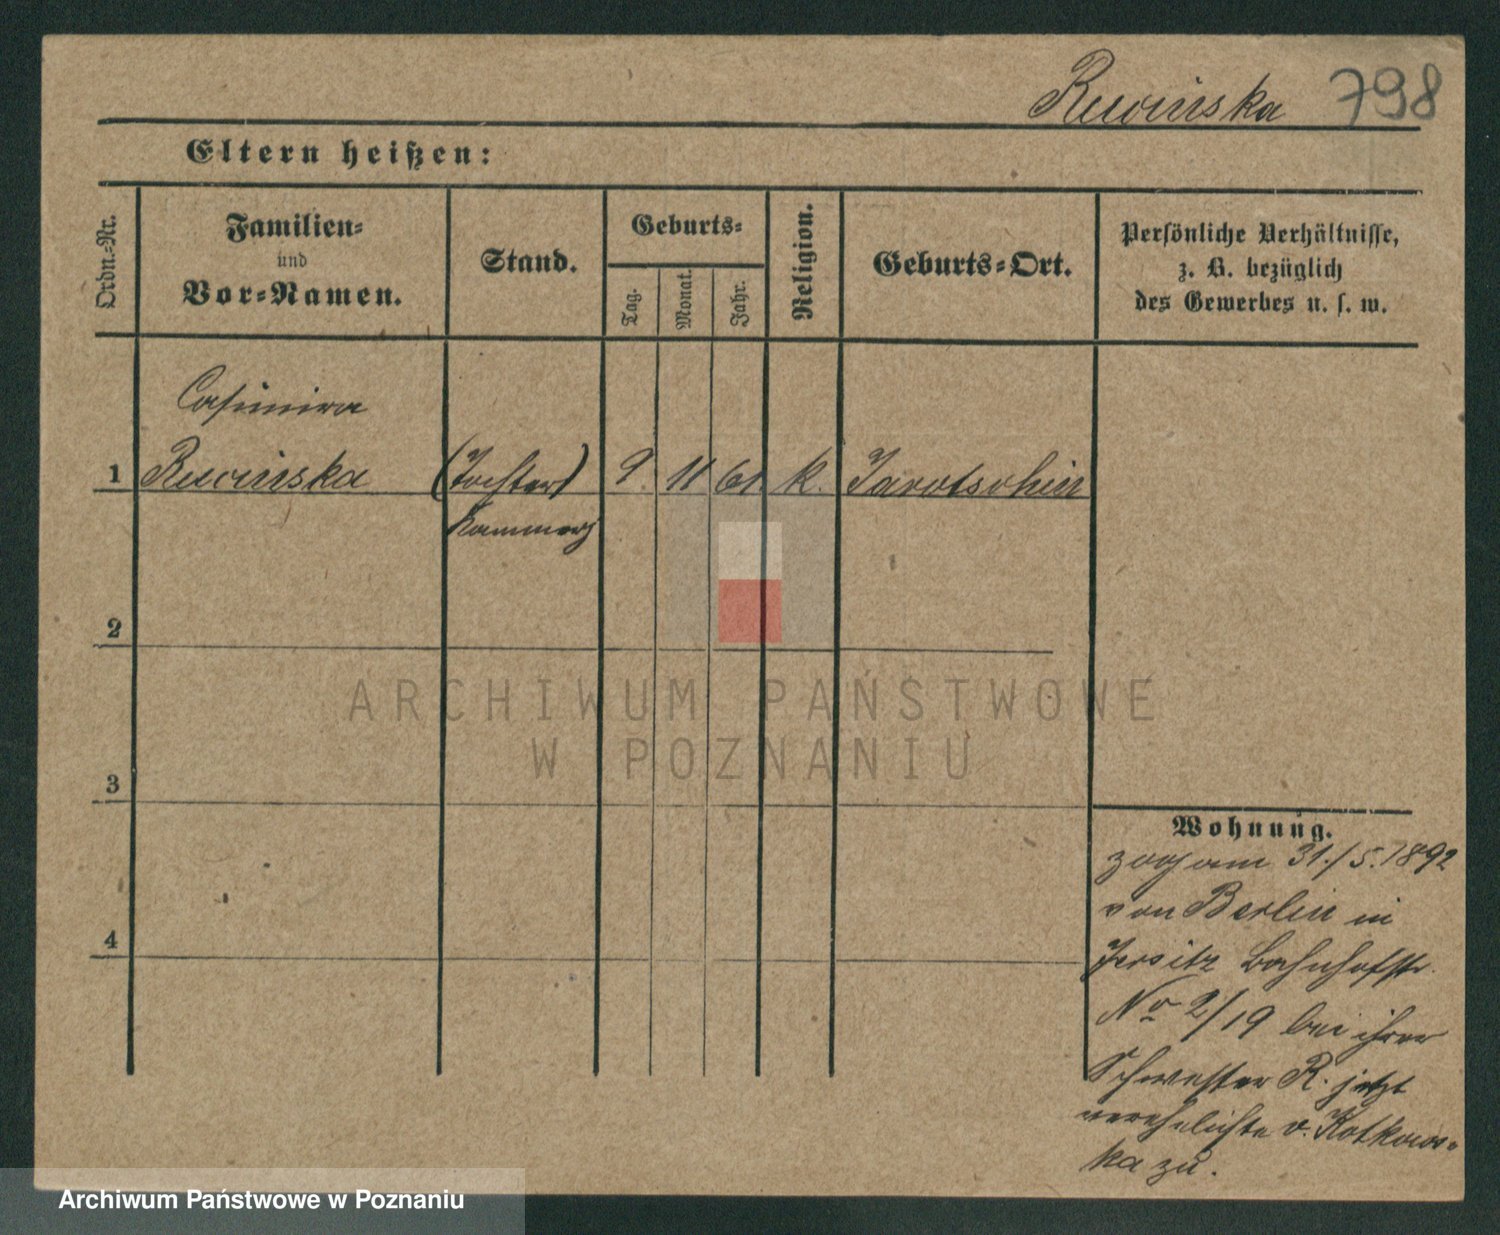 Ruvinska 798
Eltern heißen:
Ordn.-Nr.
Familien-
und
Vor-Namen.
Stand.
Geburts-
Tag.
Monat.
Jahr.
Religion.
Geburts-Ort.
Persönliche Verhältnisse,
z. B. bezüglich
des Gewerbes u. s. w.
Casimira
1 Ruvinska (Tochter) 9. 11 61. k. Jarotschin
2
3
4
Wohnung.
zog am 31./5. 1892
von Berlin in
Jersitz Bahnhofstr.
No 2/19 bei ihrer
Schwester R. jetzt
verehelichte v. Kotkows-
ka zu.
ARCHIWUM PAŃSTWOWE
W POZNANIU
Archiwum Państwowe w Poznaniu